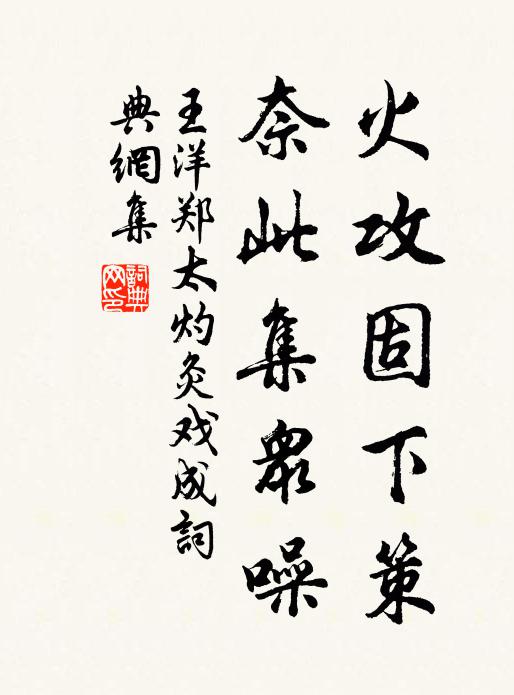 火攻固下策
奈此集衆噪
王洋郑太灼灸戏成詞
典網集
詞典
网印